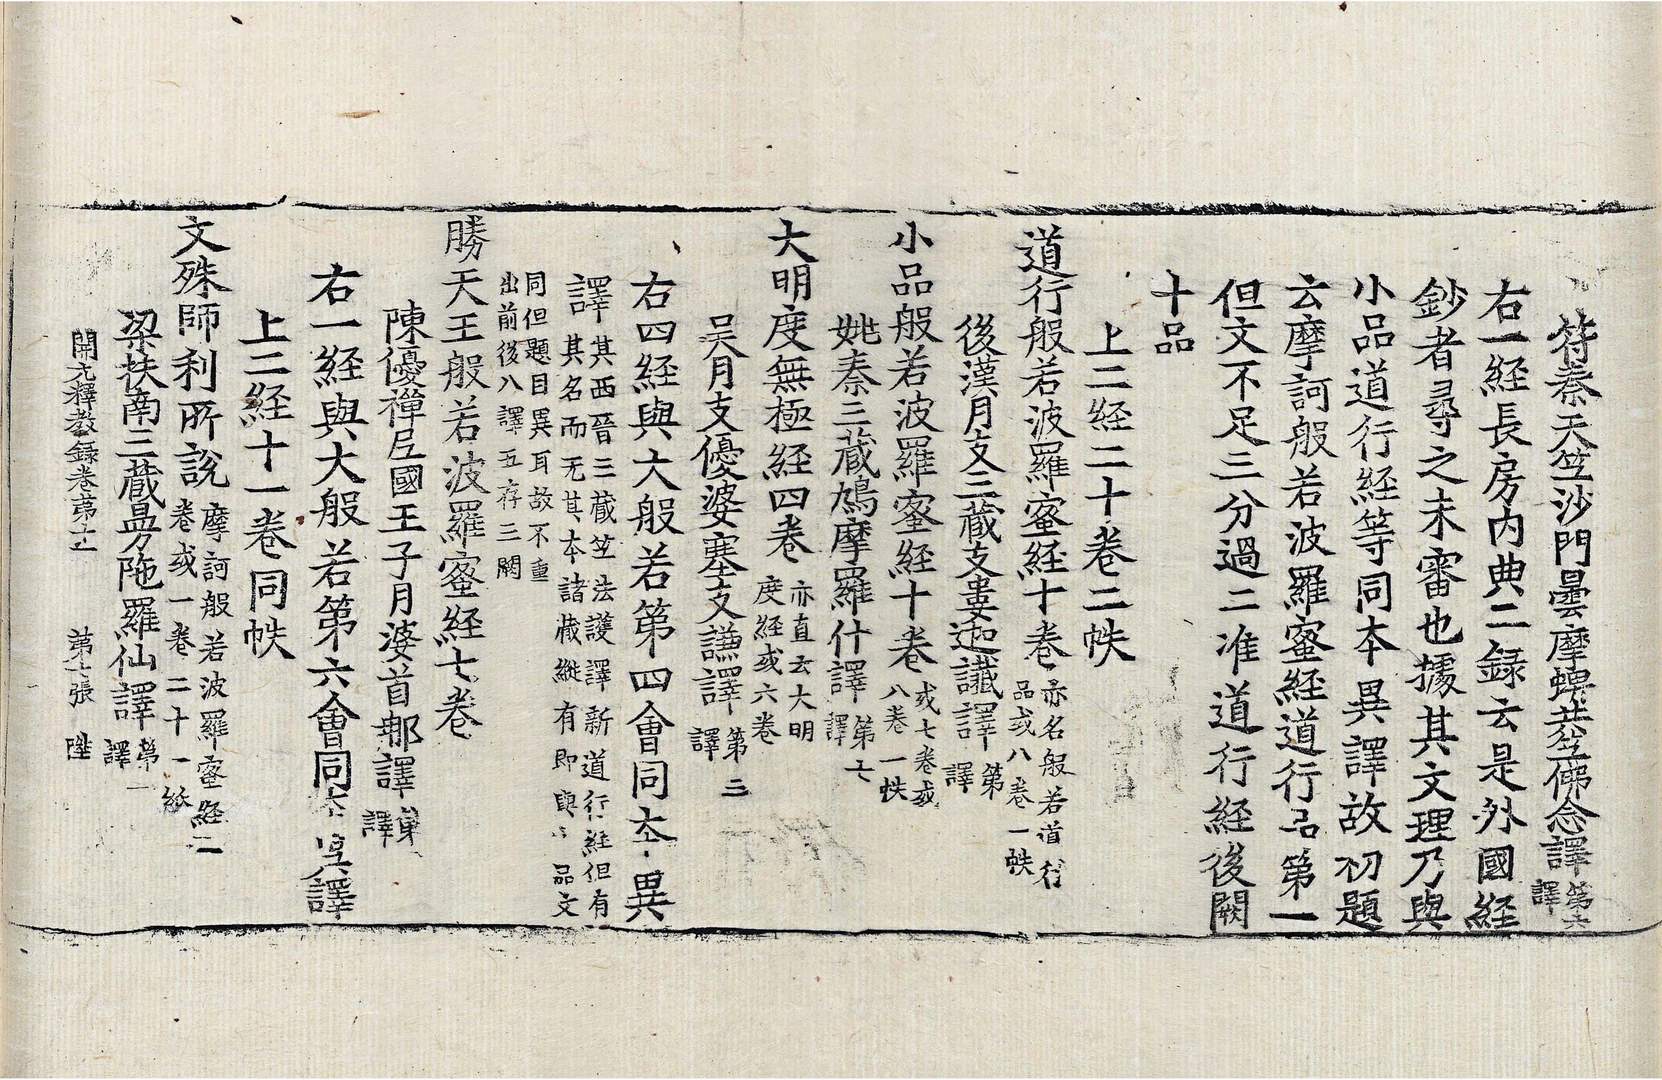 符秦天竺沙門曇摩蜱共竺佛念譯第六譯
右一経長房内典二録云是外國経
鈔者尋之未審也據其文理乃與
小品道行経等同本異譯故初題
云摩訶般若波羅蜜経道行品第一
但文不足三分過二准道行経後闕
十品
上二経二十卷二帙
道行般若波羅蜜経十卷亦名般若道行品或八卷一帙
後漢月支三藏支婁迦讖譯第譯
小品般若波羅蜜経十卷或七卷或八卷一帙
姚秦三藏鳩摩羅什譯第七譯
大明度無極経四卷亦直云大明度経或六卷
吴月支優婆塞支謙譯第三譯
右四経與大般若第四會同本異
譯其西晉三藏竺法護譯新道行経但有其名而无其本諸藏縱有即與品文
同但題目異耳故不重出前後八譯五存三闕
勝天王般若波羅蜜経七卷
陳優禪尼國王子月婆首那譯單譯
右一経與大般若第六會同本異譯
上二経十一卷同帙
文殊師利所說摩訶般若波羅蜜経二卷或一卷二十一紙
梁扶南三藏曼陁羅仙譯第一譯
開元釋教録卷第十一　第七張　陞